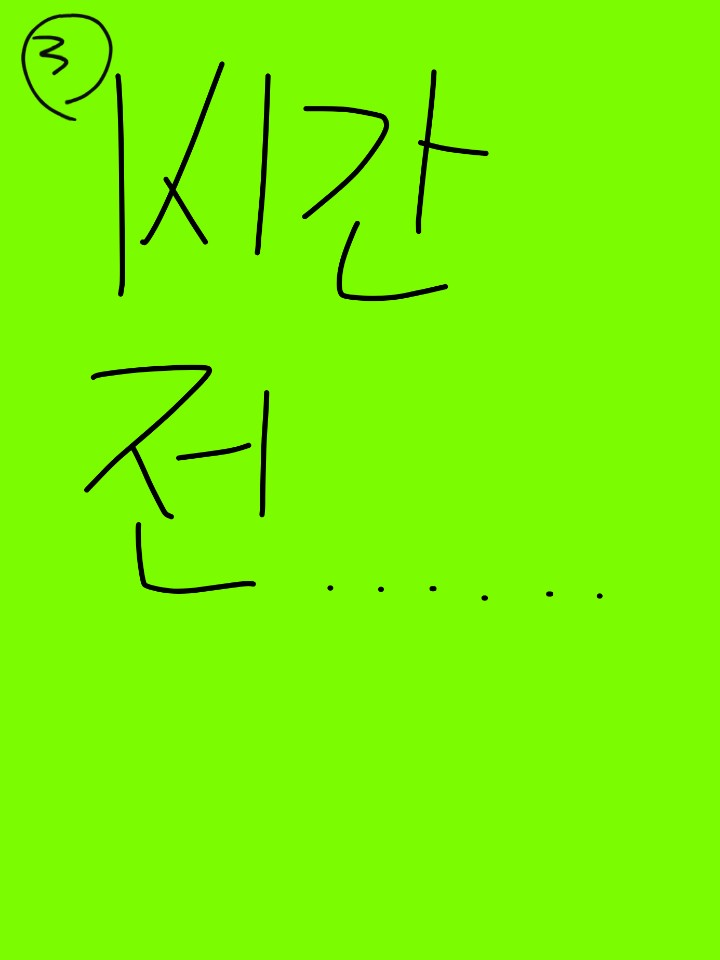 ③
1시간
전......